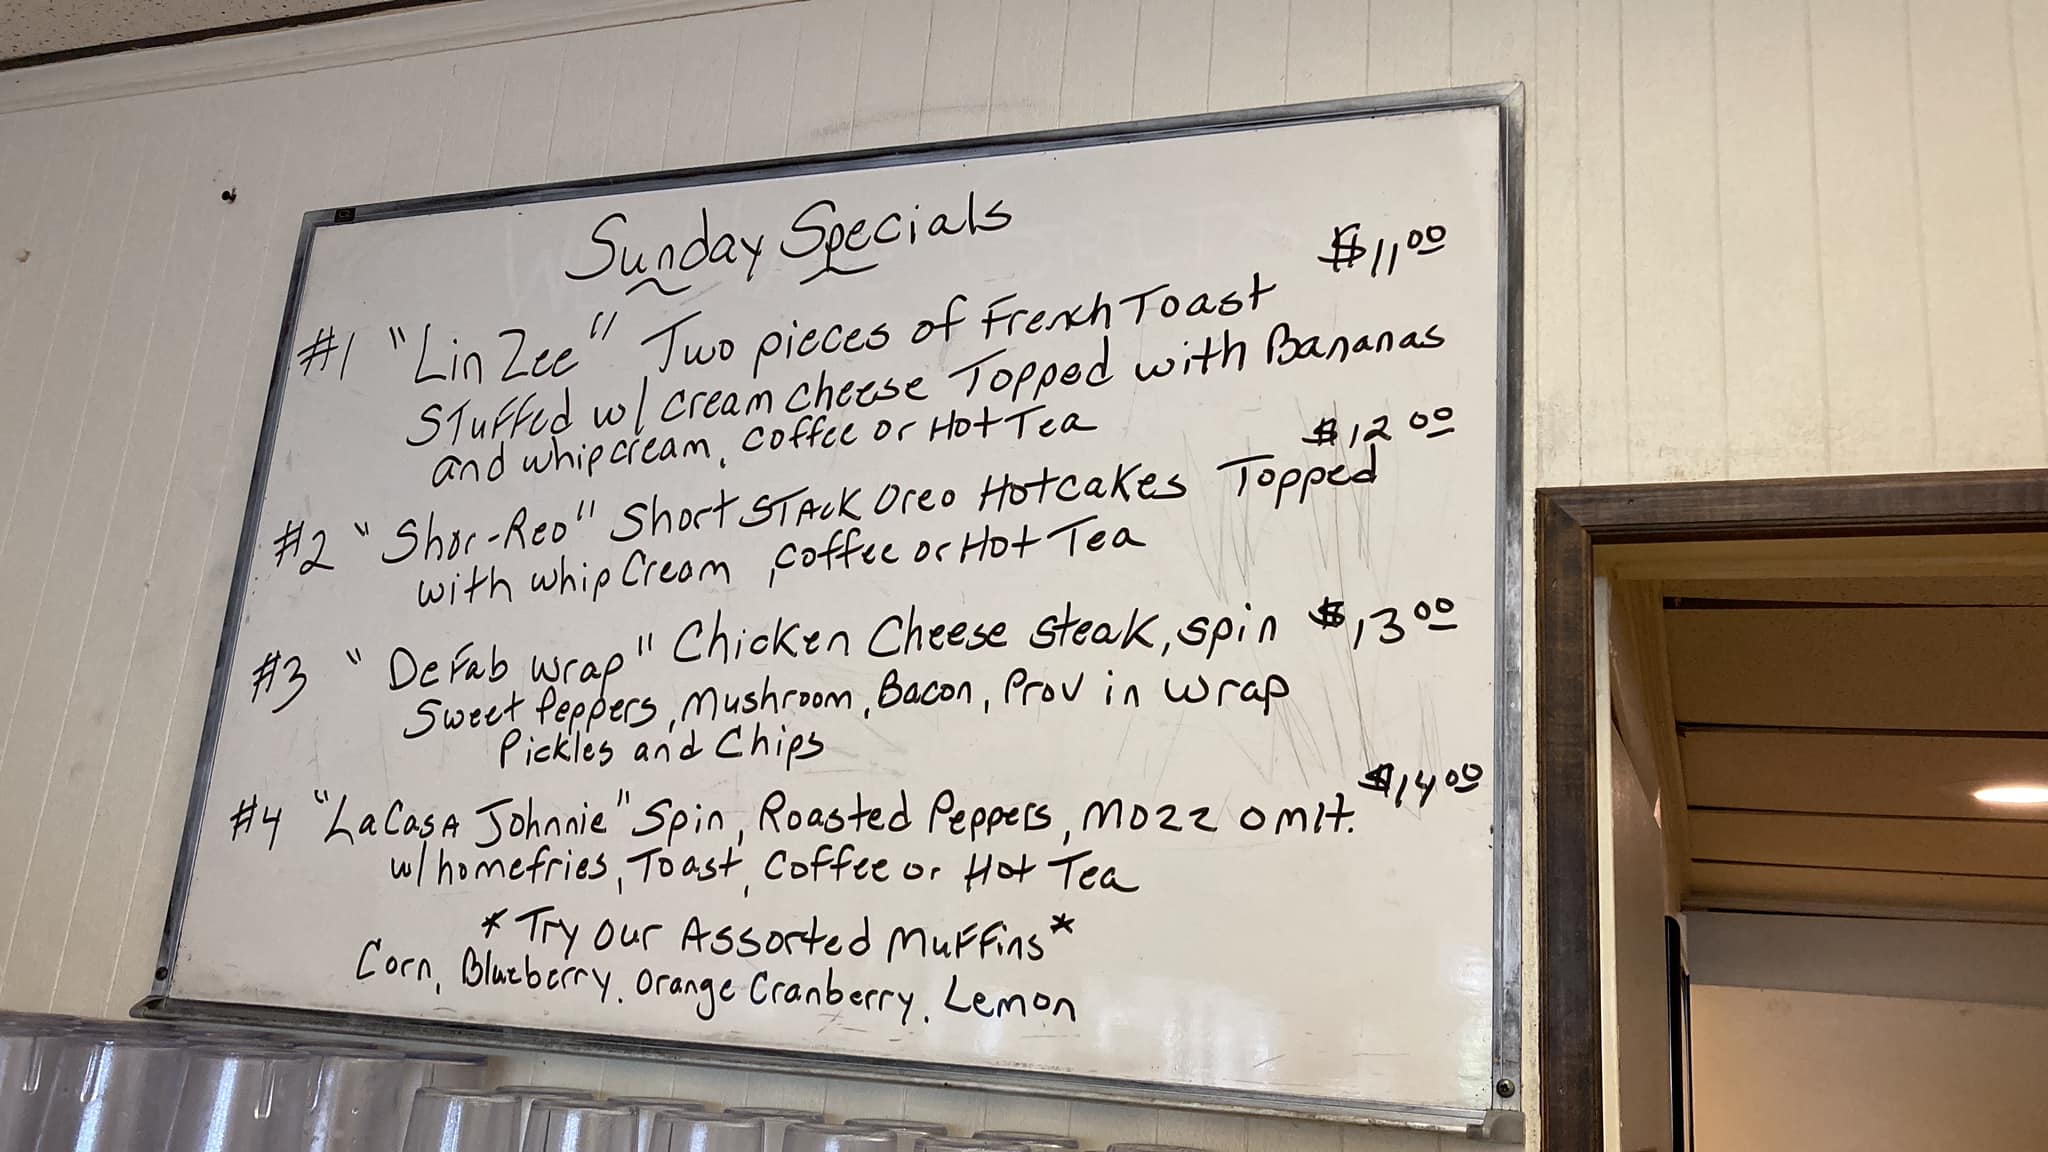 Sunday Specials
$11.00
#1 "Lin Zee" Two pieces of French Toast
Stuffed w/ cream cheese Topped with Bananas
and whipcream, coffee or Hot Tea
$12.00
#2 "Shor-Reo" Short STAcK Oreo Hotcakes Topped
with whip Cream, coffee or Hot Tea
#3 "DeFab wrap" Chicken Cheese steak, spin $13.00
Sweet Peppers, Mushroom, Bacon, Prov in wrap
Pickles and Chips
$14.00
#4 "LaCasA Johnnie" Spin, Roasted Peppers, Mozz omlt.
w/ homefries, Toast, Coffee or Hot Tea
*Try our Assorted Muffins*
Corn, Blueberry, Orange Cranberry, Lemon